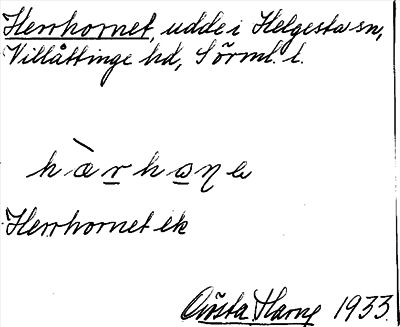 Herrhornet, udde i Helgesta sn,
Villåttinge hd, Sörml. l.
Herrhornet ek
Gösta Harne 1933.